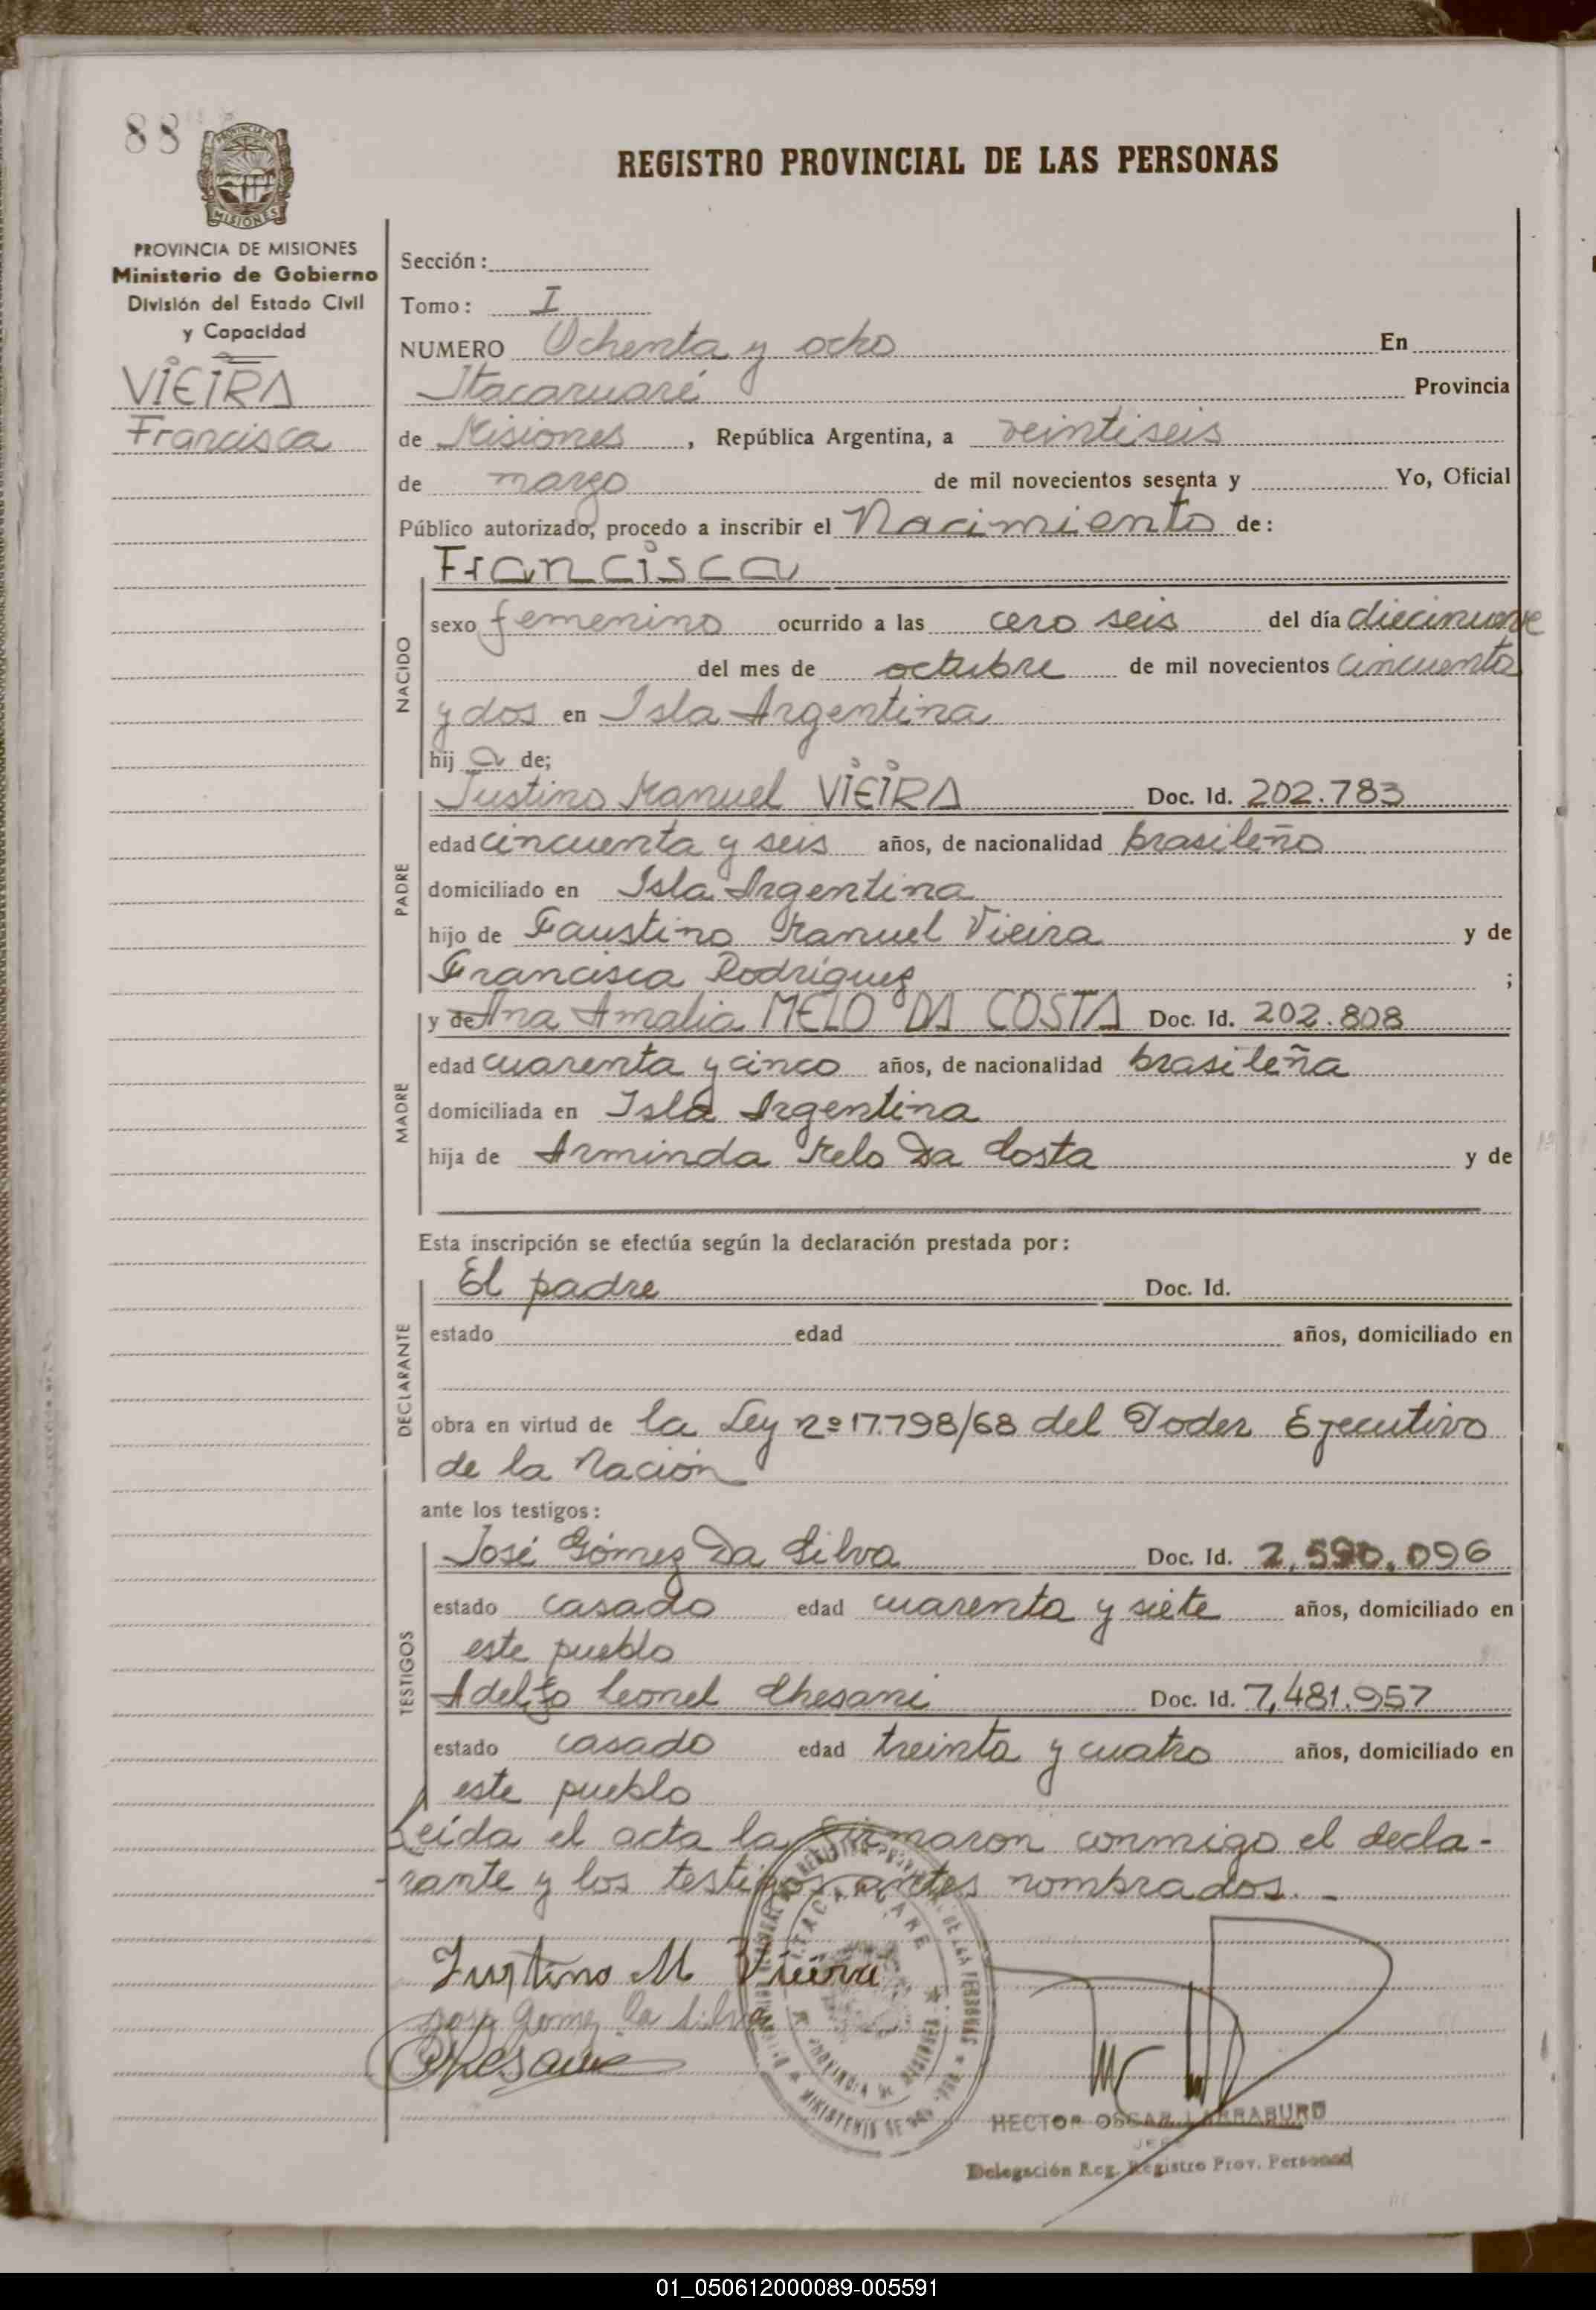 88
PROVINCIA DE
MISIONES
REGISTRO PROVINCIAL DE LAS PERSONAS
PROVINCIA DE MISIONES
Ministerio de Gobierno
División del Estado Civil
y Capacidad
VIEIRA
Francisca
Sección:
Tomo: I
NUMERO Ochenta y ocho En
Itacaruaré Provincia
de Misiones, República Argentina, a veintiseis
de marzo de mil novecientos sesenta y Yo, Oficial
Público autorizado, procedo a inscribir el Nacimiento de:
NACIDO
Francisca
sexo femenino ocurrido a las cero seis del día diecinueve
del mes de octubre de mil novecientos cincuenta
y dos en Isla Argentina
hij a de;
PADRE
Justino Manuel VIEIRA Doc. Id. 202.783
edad cincuenta y seis años, de nacionalidad brasileño
domiciliado en Isla Argentina
hijo de Faustino Manuel Vieira y de
Francisca Rodríguez ;
MADRE
y de Ana Amalia MELO DA COSTA Doc. Id. 202.808
edad cuarenta y cinco años, de nacionalidad brasileña
domiciliada en Isla Argentina
hija de Arminda Melo Da Costa y de
Esta inscripción se efectúa según la declaración prestada por:
DECLARANTE
El padre Doc. Id.
estado edad años, domiciliado en
obra en virtud de la Ley nº 17.798/68 del Poder Ejecutivo
de la Nación
ante los testigos:
TESTIGOS
José Gómez Da Silva Doc. Id. 2,590,096
estado casado edad cuarenta y siete años, domiciliado en
este pueblo
Adelfo Leonel Chesani Doc. Id. 7,481.957
estado casado edad treinta y cuatro años, domiciliado en
este pueblo
Leída el acta la firmaron conmigo el decla-
rante y los testigos antes nombrados.-
ITACARUARE
PROVINCIA DE MISIONES
Justino M Vieira
Jose Gomez Da Silva
Chesani
HECTOR OSCAR LARRABURU
JEFE
Delegación Reg. Registro Prov. Personas
01_050612000089-005591